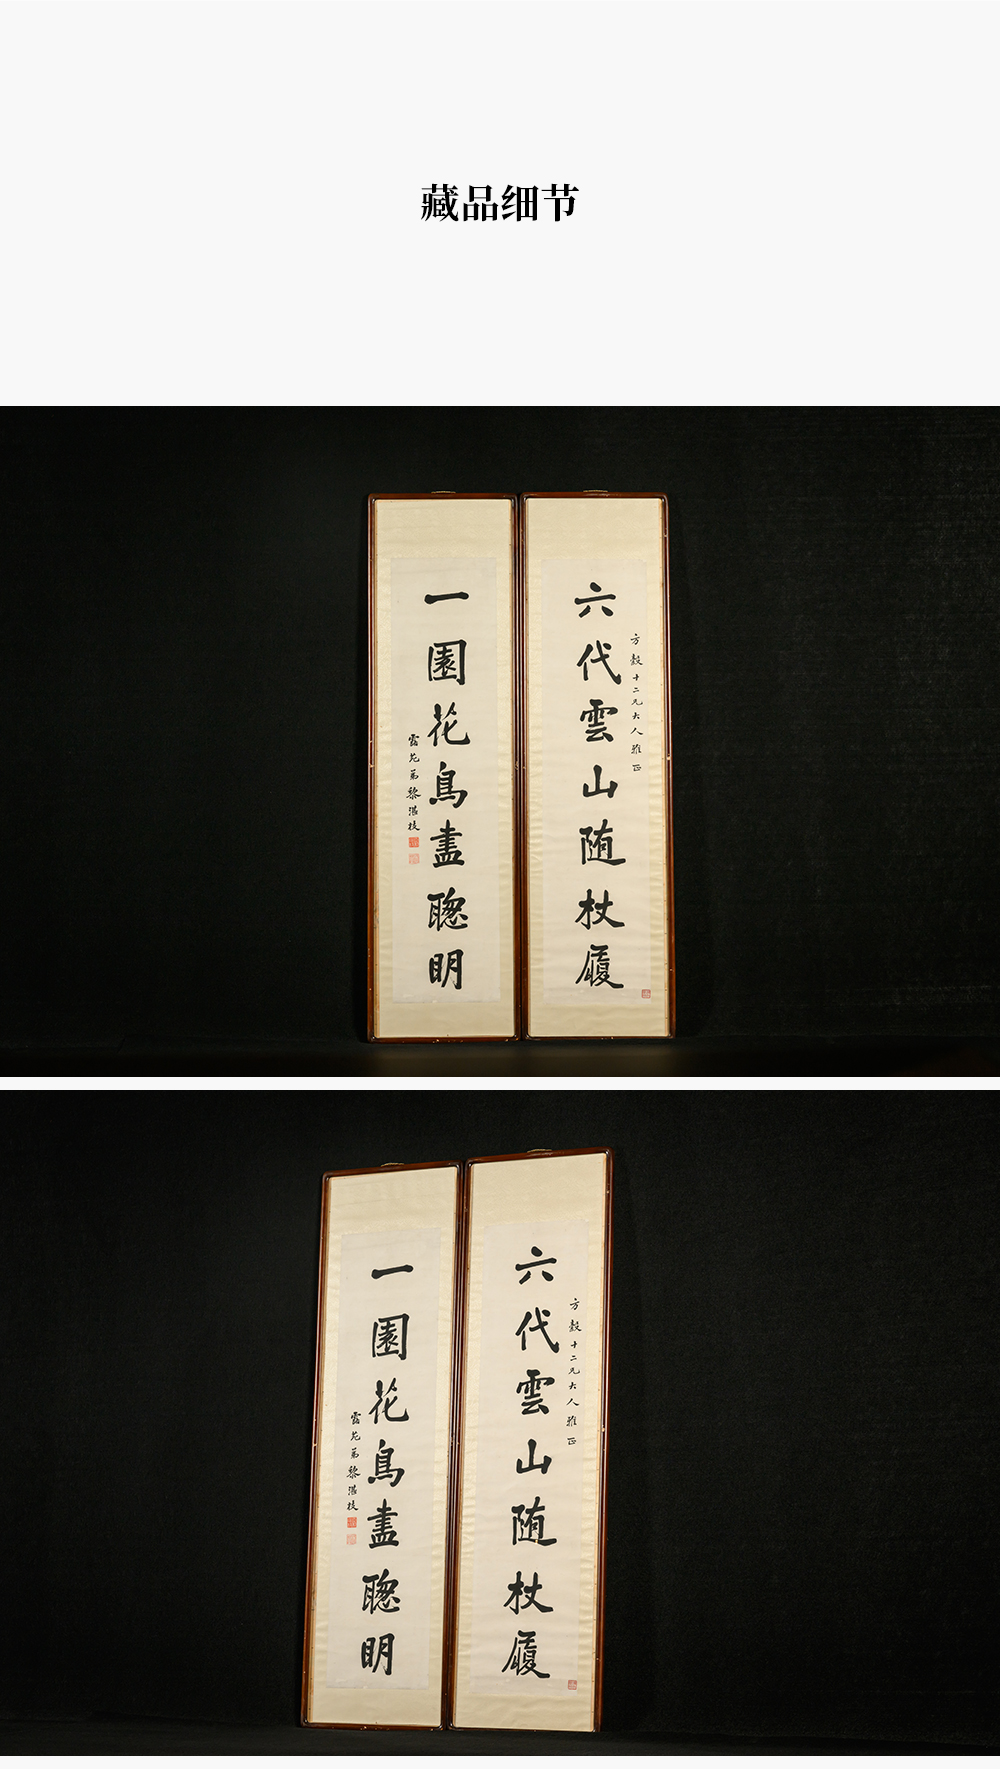 藏品细节
六代雲山随杖履
方毅十二兄大人雅正
一園花鳥盡聰明
露苑弟黎湛枝
六代雲山随杖履
方毅十二兄大人雅正
一園花鳥盡聰明
露苑弟黎湛枝